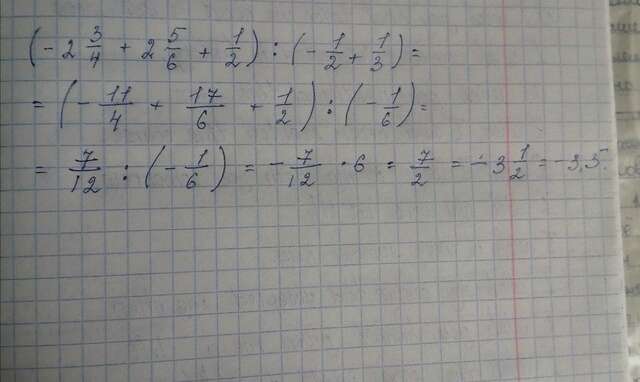 (-2 3/4 + 2 5/6 + 1/2) : (-1/2 + 1/3) =
= (-11/4 + 17/6 + 1/2) : (-1/6) =
= 7/12 : (-1/6) = -7/12 · 6 = 7/2 = -3 1/2 = -3,5.